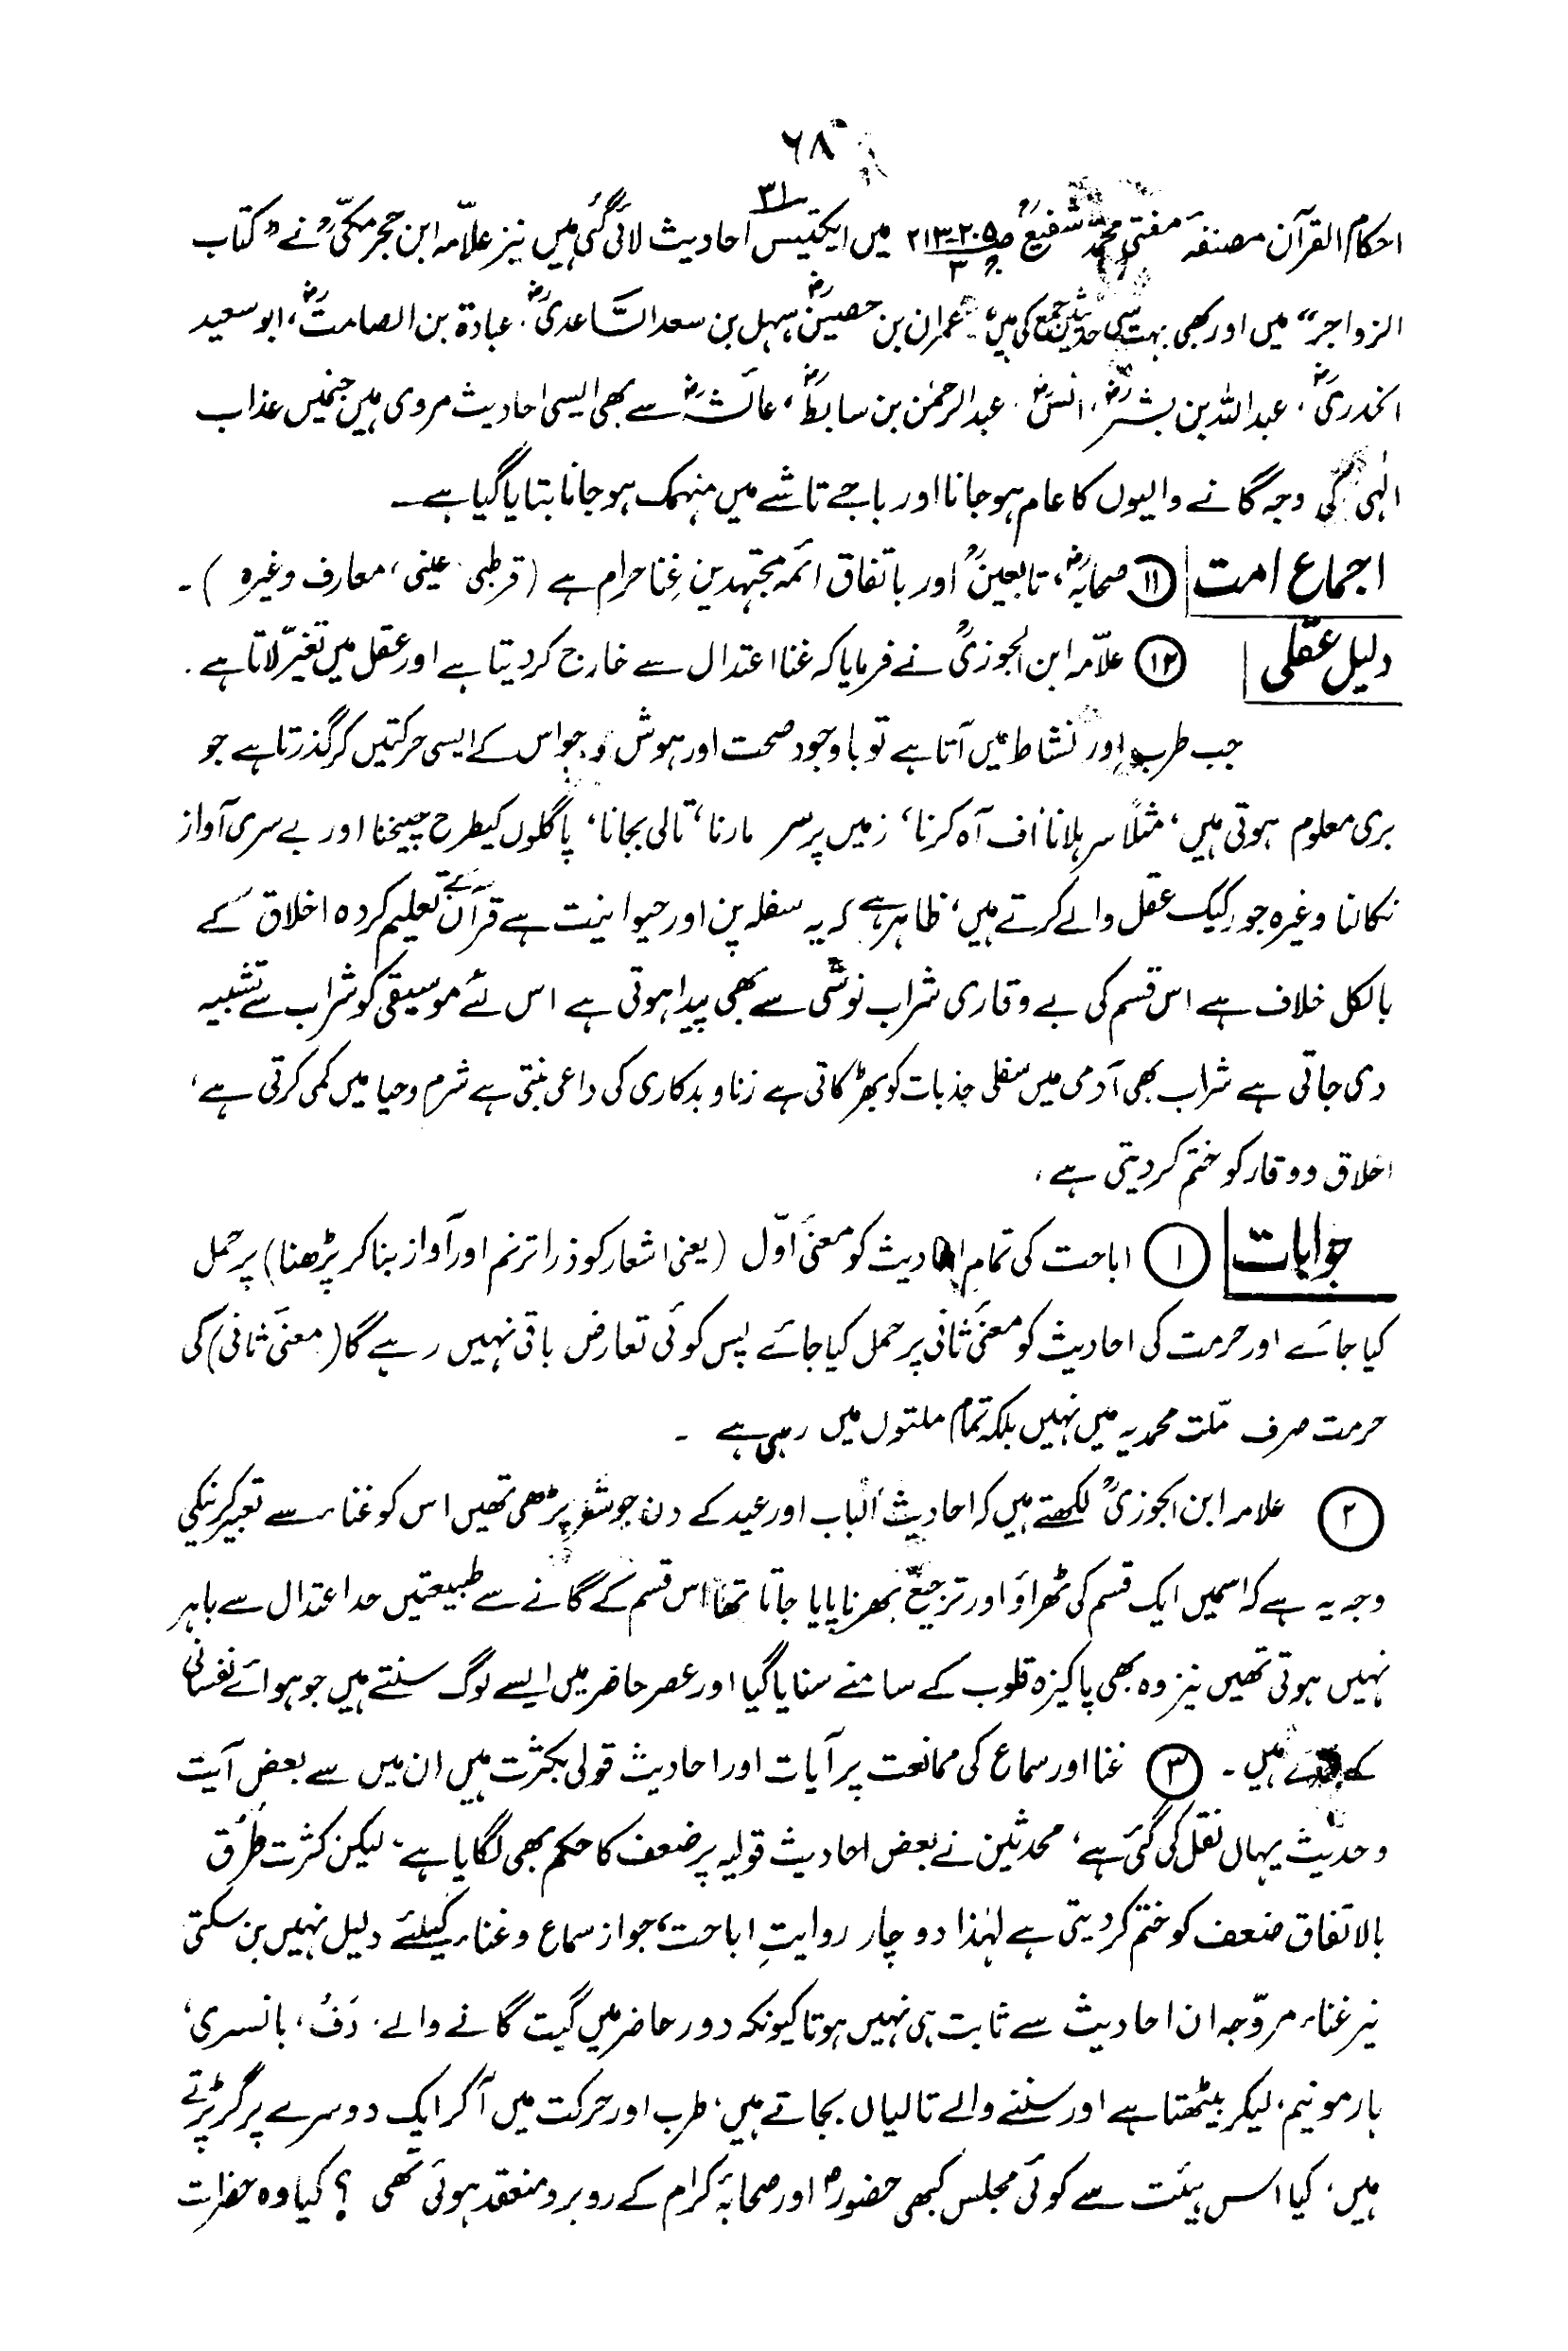 ۶۸
احکام القرآن مصنفہ مفتی محمد شفیعؒ ص ۲۰۵-۲۱۳ ج ۳ میں ایکتیس ۳۱ احادیث لائی گئی ہیں نیز علّامہ ابن حجر مکّیؒ نے ”کتاب
الزواجر“ میں اور بھی بہت سی حدیثیں جمع کی ہیں، عمران بن حصینؓ، سہل بن سعد السّاعدیؓ، عبادۃ بن الصامتؓ، ابو سعید
الخدریؓ، عبد اللہ بن بشرؓ، انسؓ، عبد الرحمٰن بن سابطؓ، عائشہؓ سے بھی ایسی احادیث مروی ہیں جنمیں عذاب
الٰہی کی وجہ گانے والیوں کا عام ہو جانا اور باجے تاشے میں منہمک ہو جانا بتایا گیا ہے۔
اجماع امت ⑪ صحابہؓ، تابعینؒ اور باتفاق ائمہ مجتہدین غنا حرام ہے (قرطبی، عینی، معارف وغیرہ)۔
دلیل عقلی ⑫ علّامہ ابن الجوزیؒ نے فرمایا کہ غنا اعتدال سے خارج کر دیتا ہے اور عقل میں تغیّر لاتا ہے۔
جب طرب اور نشاط میں آتا ہے تو باوجود صحت اور ہوش و حواس کے ایسی حرکتیں کر گذرتا ہے جو
بری معلوم ہوتی ہیں، مثلاً سر ہلانا اف آہ کرنا، زمیں پر سر مارنا، تالی بجانا، پاگلوں کیطرح چیخنا اور بے سری آواز
نکالنا وغیرہ جو رکیک عقل والے کرتے ہیں، ظاہر ہے کہ یہ سفلہ پن اور حیوانیت ہے قرآن کے تعلیم کردہ اخلاق کے
بالکل خلاف ہے اس قسم کی بے وقاری شراب نوشی سے بھی پیدا ہوتی ہے اس لئے موسیقی کو شراب سے تشبیہ
دی جاتی ہے شراب بھی آدمی میں سفلی جذبات کو بھڑکاتی ہے زنا و بدکاری کی داعی بنتی ہے شرم و حیا میں کمی کرتی ہے،
اخلاق و وقار کو ختم کر دیتی ہے،
جوابات ① اباحت کی تمام احادیث کو معنیٔ اوّل (یعنی اشعار کو ذرا ترنم اور آواز بنا کر پڑھنا) پر حمل
کیا جائے اور حرمت کی احادیث کو معنیٔ ثانی پر حمل کیا جائے پس کوئی تعارض باقی نہیں رہے گا (معنیٔ ثانی) کی
حرمت صرف ملّت محمدیہ میں نہیں بلکہ تمام ملتوں میں رہی ہے ۔
② علامہ ابن الجوزیؒ لکھتے ہیں کہ احادیث الباب اور عید کے دن جو شعر پڑھی تھیں اس کو غناء سے تعبیر کرنیکی
وجہ یہ ہے کہ اسمیں ایک قسم کی ٹھراؤ اور ترجیع بھرنا پایا جاتا تھا اس قسم کے گانے سے طبیعتیں حد اعتدال سے باہر
نہیں ہوتی تھیں نیز وہ بھی پاکیزہ قلوب کے سامنے سنایا گیا اور عصر حاضر میں ایسے لوگ سنتے ہیں جو ہوائے نفسانی
کے ہیں ۔ ③ غنا اور سماع کی ممانعت پر آیات اور احادیث قولی بکثرت ہیں ان میں سے بعض آیت
و حدیث یہاں نقل کی گئی ہے، محدثین نے بعض احادیث قولیہ پر ضعف کا حکم بھی لگایا ہے، لیکن کثرت طُرُق
بالاتفاق ضعف کو ختم کر دیتی ہے لہٰذا دو چار روایتِ اباحت، جواز سماع و غناء کیلئے دلیل نہیں بن سکتی
نیز غناء مروّجہ ان احادیث سے ثابت ہی نہیں ہوتا کیونکہ دور حاضر میں گیت گانے والے، دَف، بانسری،
ہارمونیم، لیکر بیٹھتا ہے اور سننے والے تالیاں بجاتے ہیں، طرب اور حرکت میں آکر ایک دوسرے پر گر پڑتے
ہیں، کیا اس ہیئت سے کوئی مجلس کبھی حضورؐ اور صحابۂ کرام کے روبرو منعقد ہوئی تھی ؟ کیا وہ حضرات